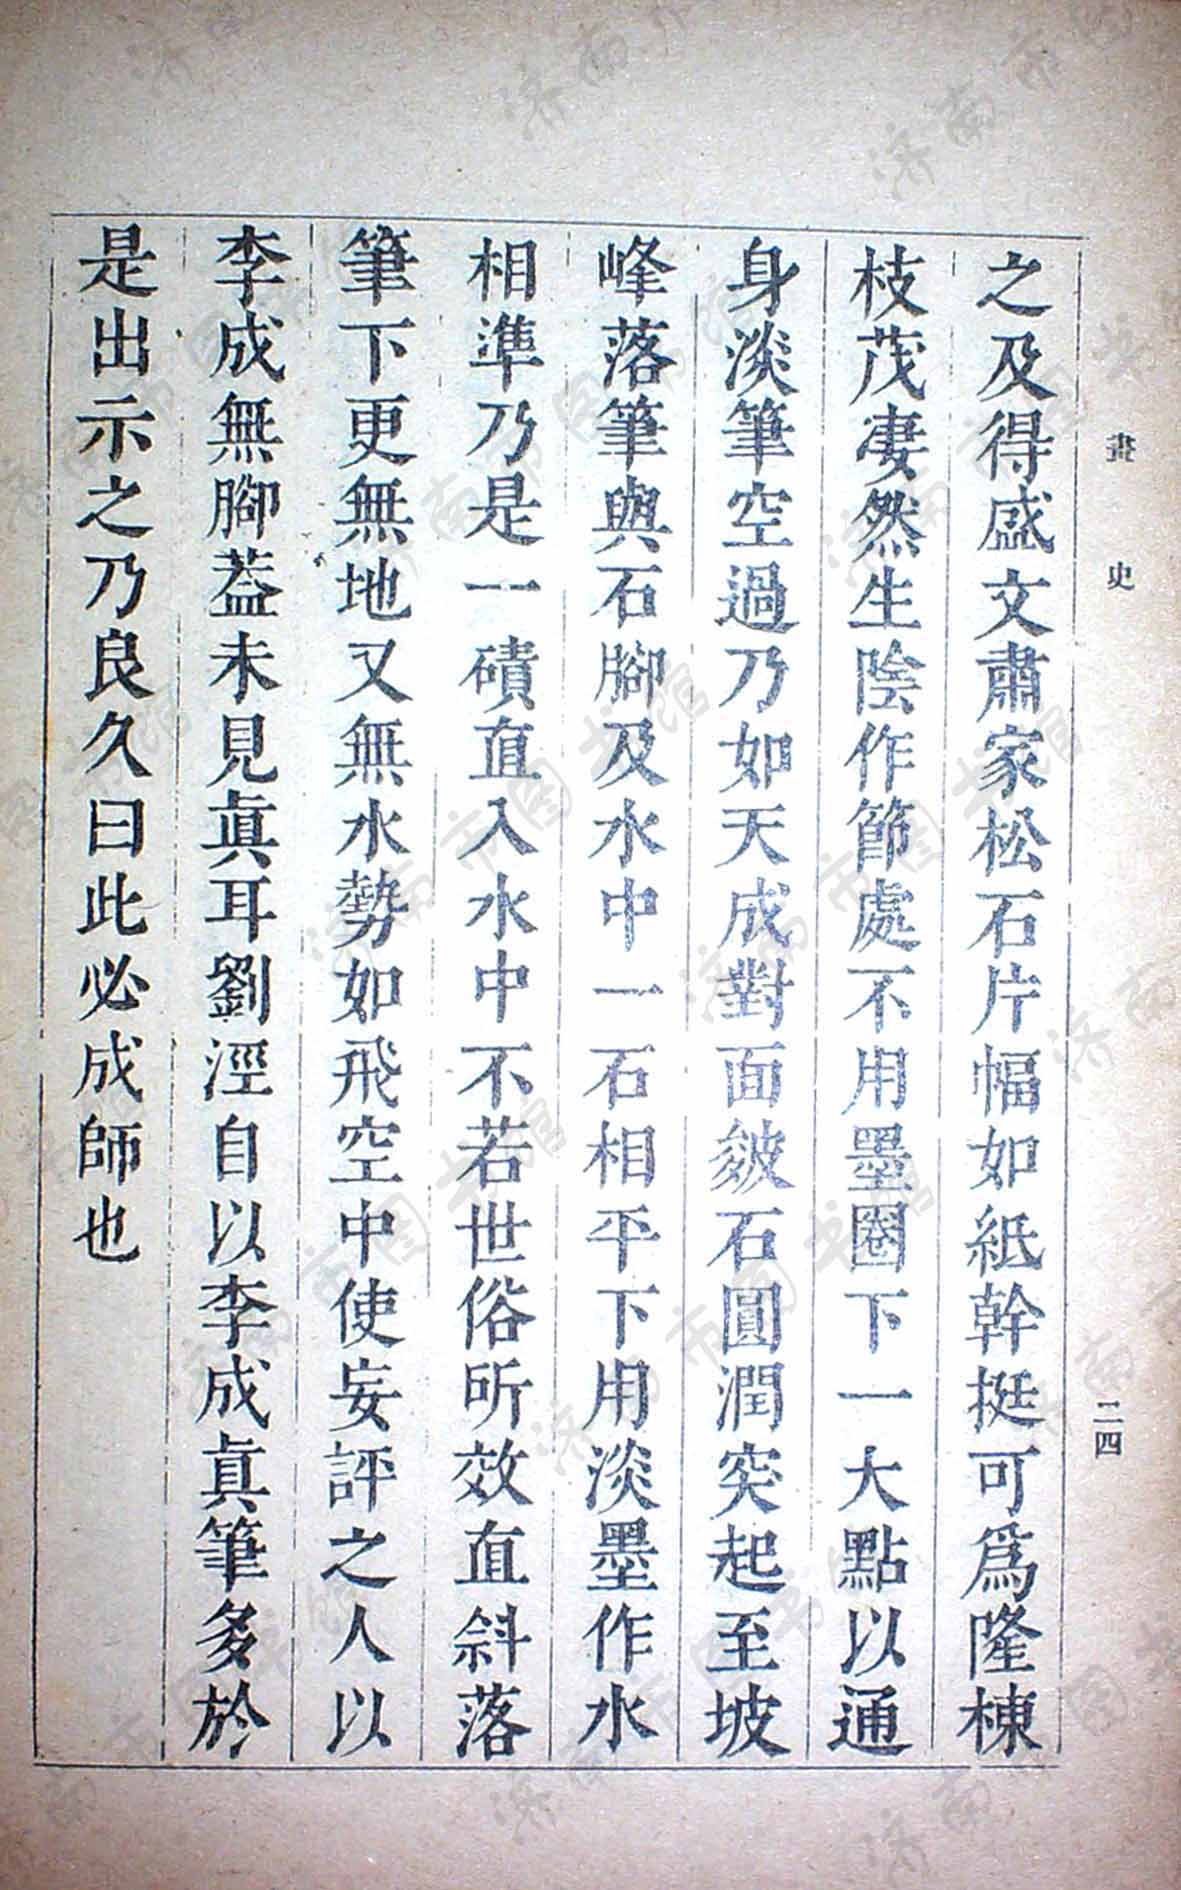 畫史
二四
之及得盛文肅家松石片幅如紙幹挺可爲隆棟
枝茂凄然生陰作節處不用墨圈下一大點以通
身淡筆空過乃如天成對面皴石圓潤突起至坡
峰落筆與石腳及水中一石相平下用淡墨作水
相準乃是一磧直入水中不若世俗所效直斜落
筆下更無地又無水勢如飛空中使妄評之人以
李成無腳葢未見眞耳劉涇自以李成眞筆多於
是出示之乃良久曰此必成師也
济南市图书馆